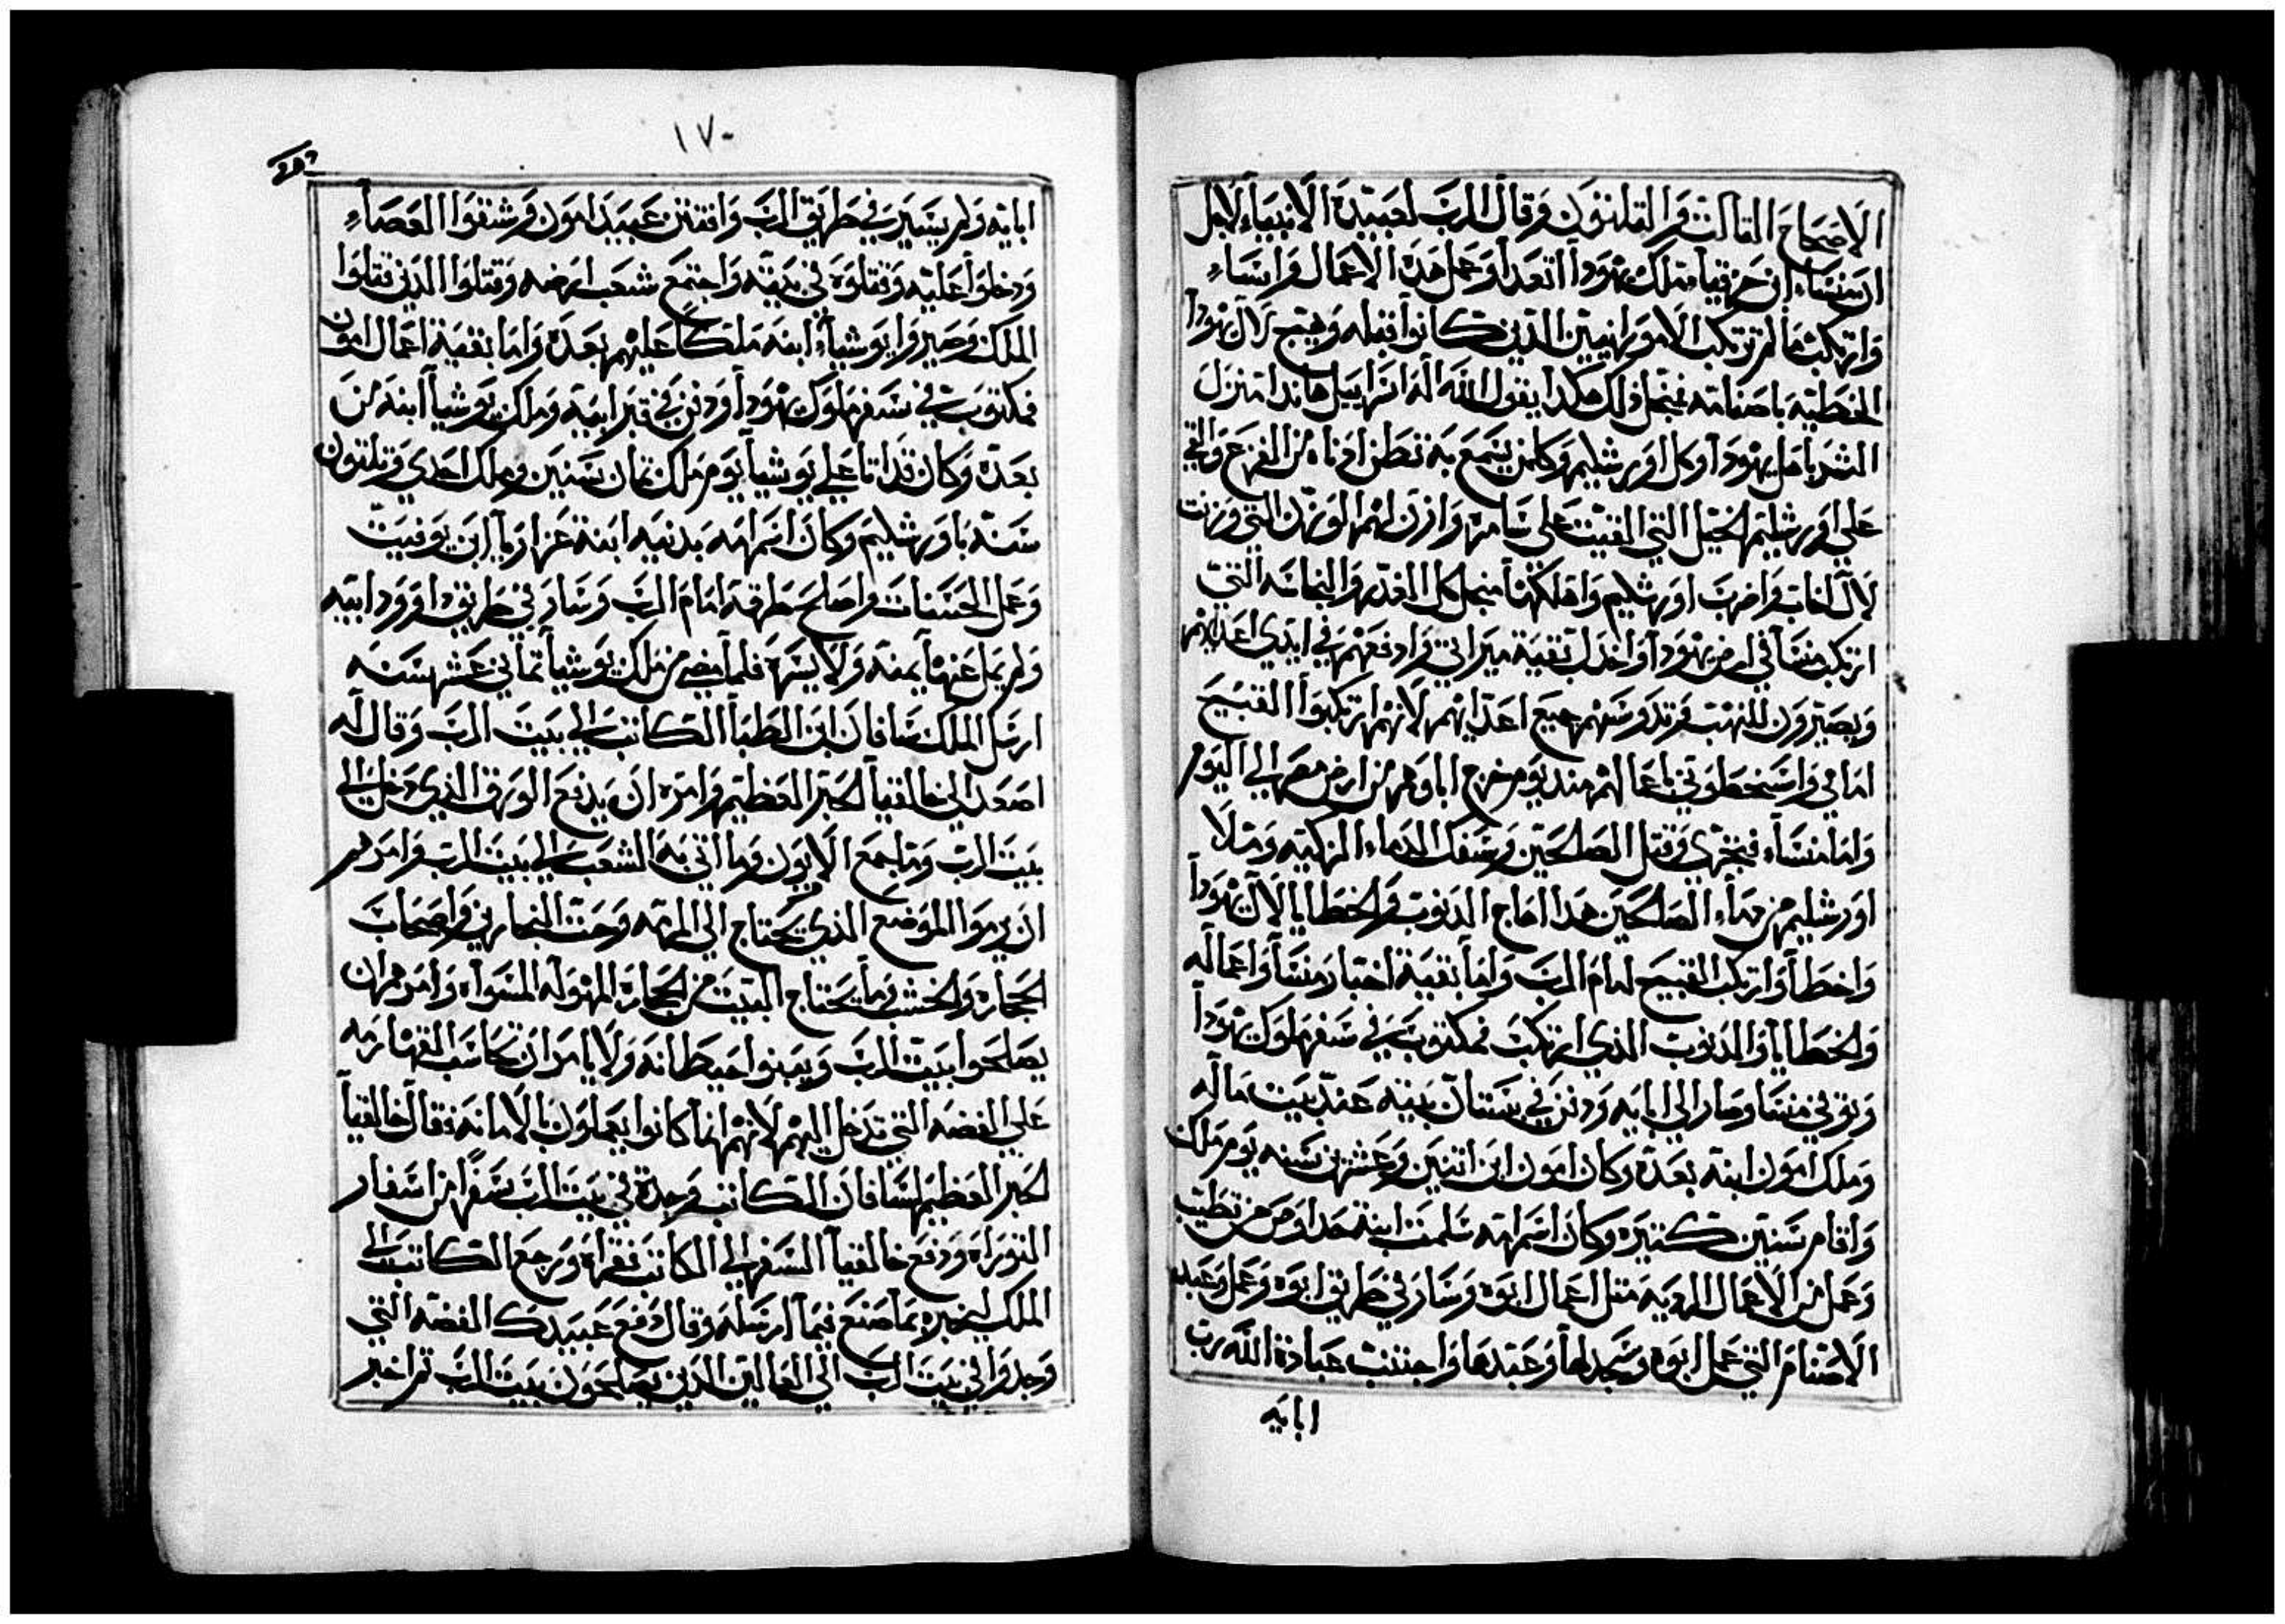 الاصحاح التالت والتلتون وقال الرب لعبيده الانبياء لاجل
ان منساء ابن حزقيا ملك يهودا اتعدا وعمل هده الاعمال واساء
وارتكب ما لم ترتكب الامورانيين الدين كانوا قبله وهيج لال يهودا
الخطيه باصنامه فمن اجل دلك هكدا يقول الله اله اسراييل هاندا منزل
الشر باهل يهودا وكل اورشليم وكلمن يسمع به تطن ادناه من الفزع والقي
علي اورشليم الحبل التي القيت علي سامره وازن لهم الوزن التي وزنت
لال اخاب واضرب اورشليم واهلكها من اجل كل الغدر والنجاسه التي
ارتكب منسا في ارض يهودا واخدل بقية ميراتي وادفعهم في ايدي اعدايهم
ويصيرون للنهب وتدوسهم جميع اعدايهم لانهم ارتكبوا القبيح
امامي واسخطوني باعمالهم مند يوم خرج اباوهم من ارض مصر الي اليوم
واما منساء فتجري وقتل الصلحين وسفك الدماء الزكيه ومتلا
اورشليم من دماء الصلحين هدا اهاج الدنوب والخطايا لال يهودا
واخطا وارتكب القبيح امام الرب واما بقية اخبار منسا واعماله
والخطايا والدنوب الدي ارتكب فمكتوب في سفر ملوك يهودا
وتوفي منسا وصار الي ابايه ودفن في بستان بيته عند بيت ماله
وملك امون ابنه بعده وكان امون ابن اتنين وعشرين سنه يوم ملك
واقام سنين كتيره وكان اسم امه سلمت ابنة حداوص من تطيب
وعمل من الاعمال الرديه متل اعمال ابوه وسار في طريق ابوه وعمل وعبد
الاصنام التي عمل ابوه وسجد لها وعبدها واجتنب عبادة الله رب
ابايه
١٧٠
ابايه ولم يسير في طريق الرب وافتتن عبيد امون وشقوا العصاء
ودخلوا عليه وقتلوه في بيته واجتمع شعب ارضه وقتلوا الدين قتلوا
الملك وصيروا يوشياء ابنه ملكا عليهم بعده واما بقية اعمال امون
فمكتوب في سفر ملوك يهودا ودفن في قبر ابيه وملك يوشيا ابنه من
بعده وكان قد اتا علي يوشيا يوم ملك تمان سنين وملك احدي وتلتون
سنه باورشليم وكان اسم امه يدنيه ابنة عزاريا ابن يوفيت
وعمل الحسنات واصلح طرقه امام الرب وسار في طريق داوود ابيه
ولم يمل عنها يمنه ولا يسره فلما مضي من ملك يوشيا تماني عشر سنه
ارسل الملك سافان ابن الطبا الكاتب الي بيت الرب وقال له
اصعد الي خالقيا الحبر العظيم وامره ان يدفع الورق الدي دخل الي
بيت الرب وما جمع الابون وما اتي به الشعب الي بيت الرب وامرهم
ان يرموا الموضع الدي يحتاج الي المرمه وحت النجارين واصحاب
الحجاره والخشب وما يحتاج البيت من الحجاره المهوله المسواه وامرهم ان
يصلحوا بيت الرب ويبنوا حيطانه ولا يامر ان يحاسب القهارمه
علي الفضه التي تدخل اليهم لانهم انما كانوا يعملون بالامانه فقال خالقيا
الحبر العظيم لسافان الكاتب وجدة في بيت الرب سفرا من اسفار
التوراه ودفع خالقيا السفر الي الكاتب فقراه ورجع الكاتب الي
الملك ليخبره بما صنع فيما ارسله وقال دفع عبيدك الفضه التي
وجدوا في بيت الرب الي العمالين الدين يصلحون بيت الرب تم اخبر